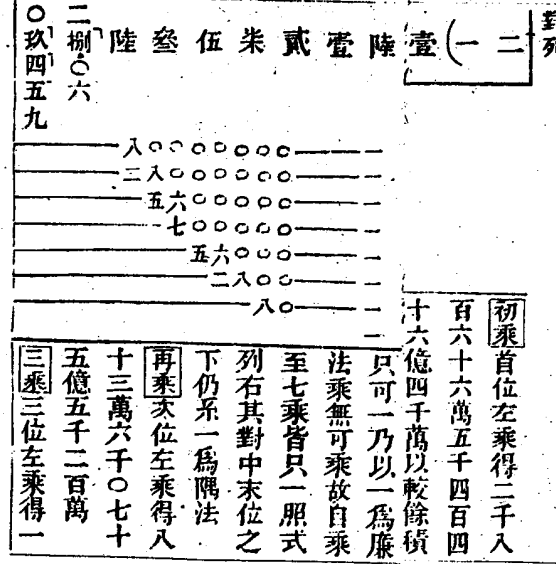 對列
二一(壹陸壹貳柒伍叄陸
二捌〇六
〇玖四五九
八〇〇〇〇〇〇〇一
二八〇〇〇〇〇〇一
五六〇〇〇〇〇一
七〇〇〇〇〇一
五六〇〇〇一
二八〇〇一
八〇一
一
初乘首位左乘得二千八
百六十六萬五千四百四
十六億四千萬以較餘積
只可一乃以一爲廉
法乘無可乘故自乘
至七乘皆只一照式
列右其對中末位之
下仍系一爲隅法
再乘次位左乘得八
十三萬六千〇七十
五億五千二百萬
三乘三位左乘得一